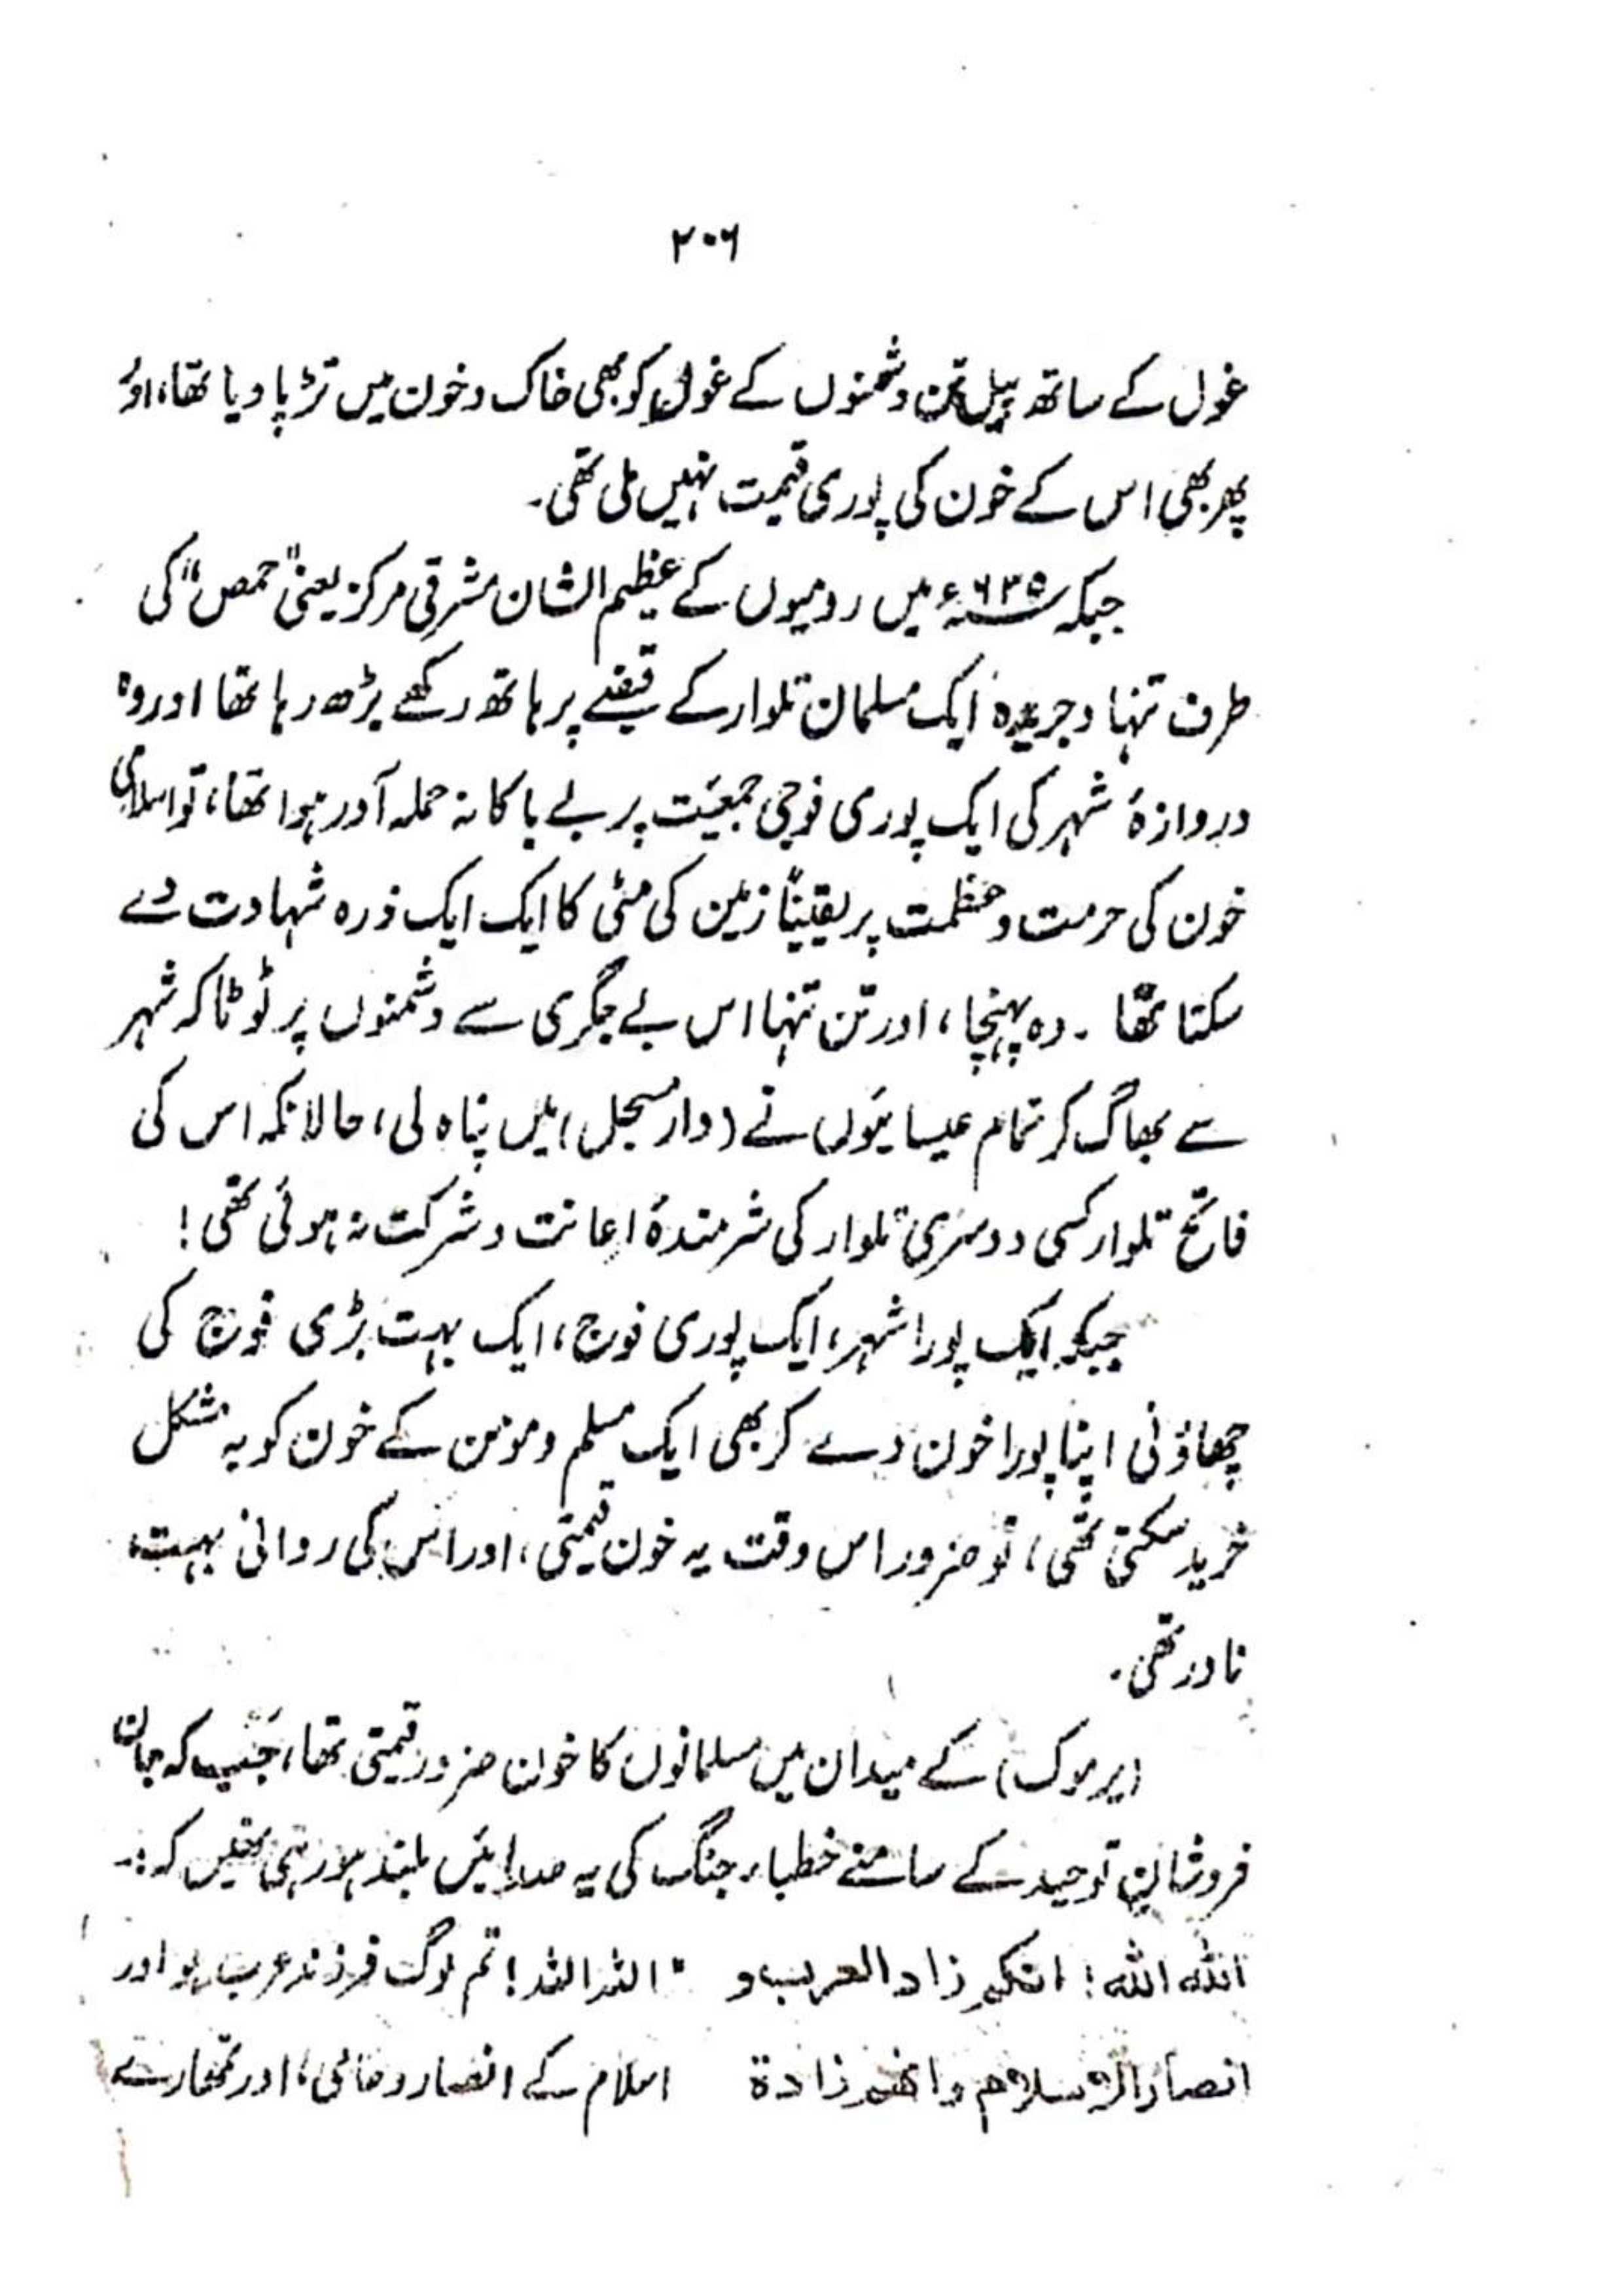 ۲۰۶
غول کے ساتھ پیل تن دشمنوں کے غول کو بھی خاک و خون میں تڑپا دیا تھا، اور
پھر بھی اس کے خون کی پوری قیمت نہیں ملی تھی۔
جبکہ ۶۳۵ء میں رومیوں کے عظیم الشان مشرقی مرکز یعنی "حمص" کی
طرف تنہا و جریدہ ایک مسلمان تلوار کے قبضے پر ہاتھ رکھے بڑھ رہا تھا اور وہ
دروازۂ شہر کی ایک پوری فوجی جمعیّت پر بے باکانہ حملہ آور ہوا تھا، تو اسلامی
خون کی حرمت و عظمت پر یقیناً زمین کی مٹی کا ایک ایک ذرہ شہادت دے
سکتا تھا ۔ وہ پہنچا، اور تن تنہا اس بے جگری سے دشمنوں پر ٹوٹا کہ شہر
سے بھاگ کر تمام عیسائیوں نے (دار مسجل) میں پناہ لی، حالانکہ اس کی
فاتح تلوار کسی دوسری تلوار کی شرمندۂ اعانت و شرکت نہ ہوئی تھی!
جبکہ ایک پورا شہر، ایک پوری فوج، ایک بہت بڑی فوج کی
چھاؤنی اپنا پورا خون دے کر بھی ایک مسلم و مومن کے خون کو بہ مشکل
خرید سکتی تھی، تو ضرور اس وقت یہ خون قیمتی، اور اس کی روانی بہت
نادر تھی۔
(یرموک) کے میدان میں مسلمانوں کا خون ضرور قیمتی تھا، جب کہ جان
فروشانِ توحید کے سامنے خطباء جنگ کی یہ صدائیں بلند ہو رہی تھیں کہ:۔
الله الله! انکم زاد العرب و " اللہ اللہ! تم لوگ فرزند عرب ہو اور
انصار الاسلام وانهم زادة اسلام کے انصار و حامی، اور تمھارے